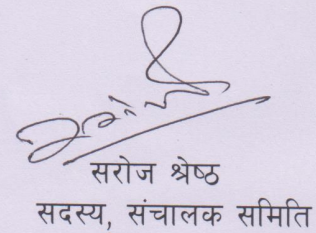 सरोज श्रेष्ठ
सदस्य, संचालक समिति